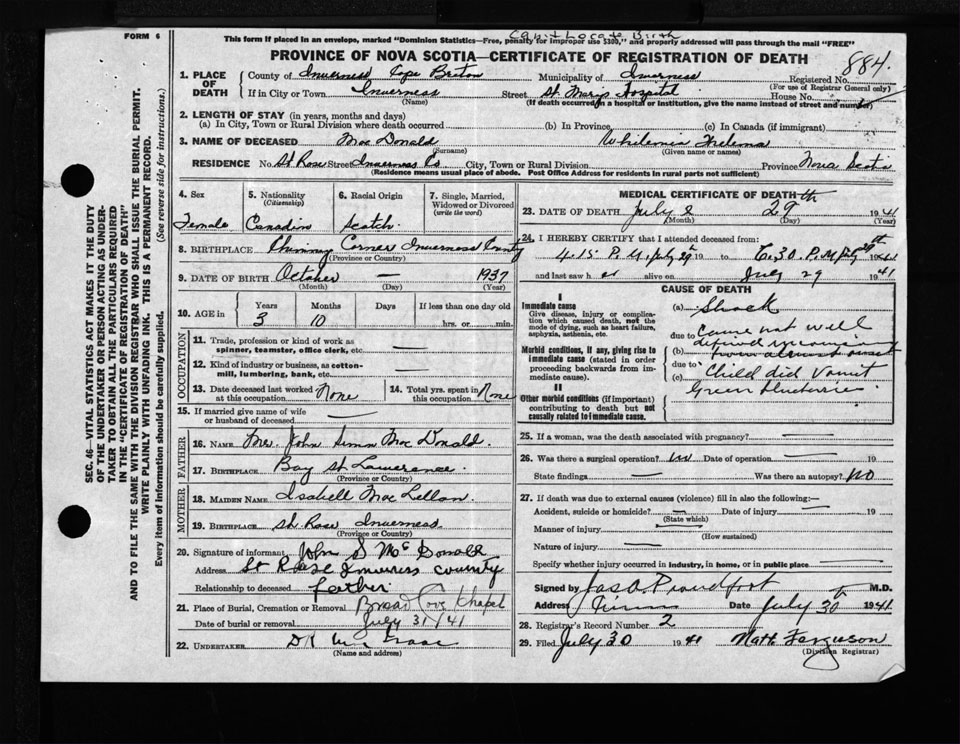 FORM 6
Can't Locate Birth
This form if placed in an envelope, marked "Dominion Statistics—Free, penalty for improper use $300," and properly addressed will pass through the mail "FREE"
PROVINCE OF NOVA SCOTIA—CERTIFICATE OF REGISTRATION OF DEATH
884.
1. PLACE OF DEATH
County of Inverness Cape Breton Municipality of Inverness Registered No.
(For use of Registrar General only)
If in City or Town Inverness Street St. Mary's Hospital House No.
(Name) (If death occurred in a hospital or institution, give the name instead of street and number)
2. LENGTH OF STAY (in years, months and days)
(a) In City, Town or Rural Division where death occurred (b) In Province (c) In Canada (if immigrant)
3. NAME OF DECEASED Mac Donald Whilemin Thelema
(Surname) (Given name or names)
RESIDENCE No. St Rose Street Inverness Co City, Town or Rural Division Province Nova Scotia
(Residence means usual place of abode. Post Office Address for residents in rural parts not sufficient)
4. Sex Female
5. Nationality (Citizenship) Canadian
6. Racial Origin Scotch
7. Single, Married, Widowed or Divorced (write the word)
8. BIRTHPLACE Chimney Corner Inverness County
(Province or Country)
9. DATE OF BIRTH October — 1937
(Month) (Day) (Year)
10. AGE in Years 3 Months 10 Days If less than one day old
hrs. or min.
OCCUPATION
11. Trade, profession or kind of work as spinner, teamster, office clerk, etc. —
12. Kind of industry or business, as cotton-mill, lumbering, bank, etc. —
13. Date deceased last worked at this occupation None
14. Total yrs. spent in this occupation None
15. If married give name of wife or husband of deceased —
FATHER
16. NAME Mr. John Simon Mac Donald.
17. BIRTHPLACE Bay St. Lawerance.
(Province or Country)
MOTHER
18. MAIDEN NAME Isabell Mac Lellan
19. BIRTHPLACE St. Rose Inverness
(Province or Country)
20. Signature of informant John S McDonald
Address St Rose Inverness county
Relationship to deceased father
21. Place of Burial, Cremation or Removal Broad Cove Chapel
Date of burial or removal July 31/41
22. UNDERTAKER
(Name and address)
MEDICAL CERTIFICATE OF DEATH
23. DATE OF DEATH July 29th 1941
(Month) (Day) (Year)
24. I HEREBY CERTIFY that I attended deceased from:
4.15 P.M. July 29th 19 to 6.30 P.M. July 29th 1941
and last saw h er alive on July 29 1941
CAUSE OF DEATH
I
Immediate cause
Give disease, injury or complication which caused death, not the mode of dying, such as heart failure, asphyxia, asthenia, etc.
Morbid conditions, if any, giving rise to immediate cause (stated in order proceeding backwards from immediate cause).
II
Other morbid conditions (if important) contributing to death but not causally related to immediate cause.
(a) Shock
due to Cause not well
(b) defined
from almost
due to
(c) Child did vomit
Green
25. If a woman, was the death associated with pregnancy? —
26. Was there a surgical operation? no Date of operation — 19
State findings — Was there an autopsy? No
27. If death was due to external causes (violence) fill in also the following:—
Accident, suicide or homicide? — Date of injury — 19
(State which)
Manner of injury —
(How sustained)
Nature of injury —
Specify whether injury occurred in industry, in home, or in public place
Signed by Jas. A. Proudfoot M.D.
Address Date July 30th 1941
28. Registrar's Record Number 2
29. Filed July 30 1941 Matt Ferguson
(Division Registrar)
SEC. 46—VITAL STATISTICS ACT MAKES IT THE DUTY
OF THE UNDERTAKER OR PERSON ACTING AS UNDER-
TAKER TO OBTAIN ALL THE PARTICULARS REQUIRED
IN THE "CERTIFICATE OF REGISTRATION OF DEATH"
AND TO FILE THE SAME WITH THE DIVISION REGISTRAR WHO SHALL ISSUE THE BURIAL PERMIT.
WRITE PLAINLY WITH UNFADING INK. THIS IS A PERMANENT RECORD.
Every item of information should be carefully supplied. (See reverse side for instructions.)